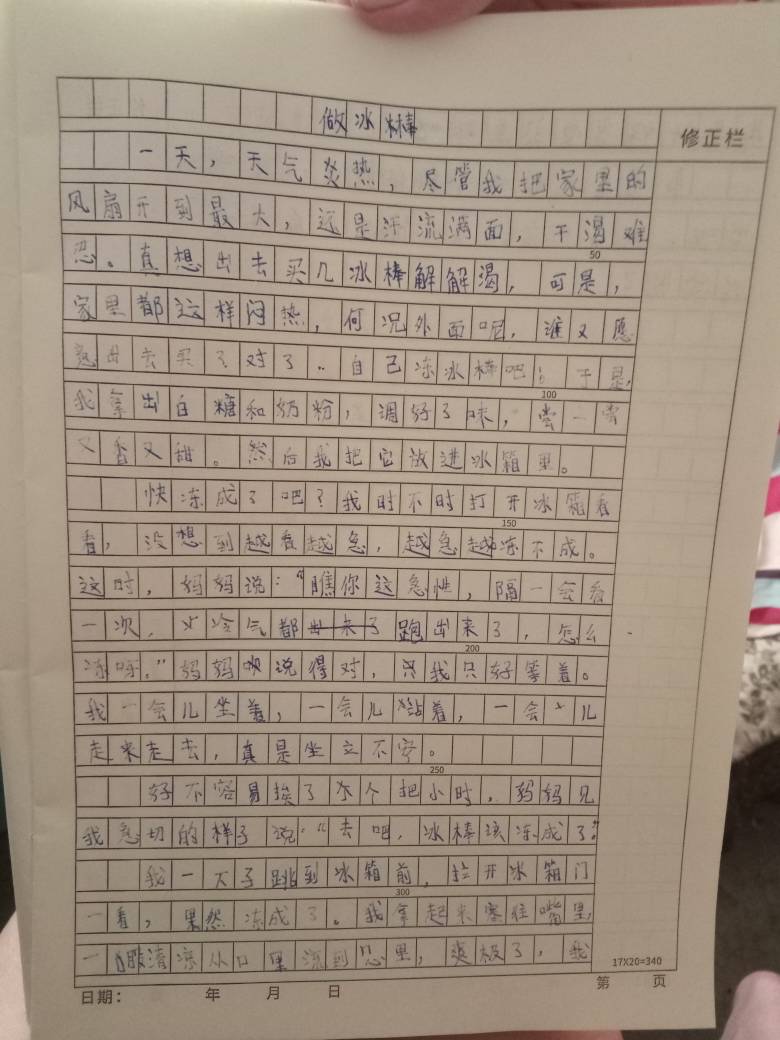 做冰棒
修正栏
一天，天气炎热，尽管我把家里的
风扇开到最大，还是汗流满面，干渴难
50
忍。真想出去买几冰棒解解渴，可是，
家里都这样闷热，何况外面呢，谁又愿
意出去买？对了..自己冻冰棒吧！于是，
100
我拿出白糖和奶粉，调好了味，尝一尝
又香又甜。然后我把它放进冰箱里。
快冻成了吧？我时不时打开冰箱看
150
看，没想到越看越急，越急越冻不成。
这时，妈妈说：“瞧你这急性，隔一会看
一次，冷气都跑出来了，怎么
200
冻呀。”妈妈说得对，我只好等着。
我一会儿坐着，一会儿站着，一会儿
走来走去，真是坐立不安。
250
好不容易挨了个把小时，妈妈见
我急切的样子说：“去吧，冰棒该冻成了。”
我一下子跳到冰箱前，拉开冰箱门
300
一看，果然冻成了。我拿起来塞往嘴里，
一股清凉从口里流到心里，爽极了，我
17X20=340
日期： 年 月 日 第 页